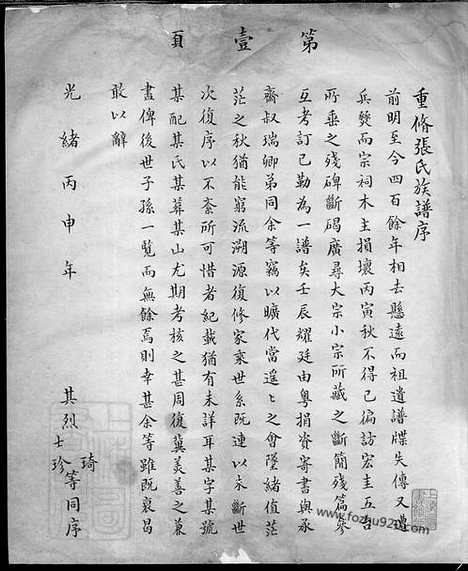 第壹頁
重脩張氏族譜序
前明至今四百餘年相去懸遠而祖遺譜牒失傳又遭
兵燹而宗祠木主損壞丙寅秋不得已徧訪宏圭五吉
所垂之殘碑斷碣廣尋大宗小宗所藏之斷簡殘篇參
互考訂已勒為一譜矣壬辰耀廷由粵捐資寄書與承
齋叔瑞卿弟同余等竊以曠代當遥遥之會墜緒值茫
茫之秋猶能窮流溯源復修家乘世系既連以永斷世
次復序以不紊所可惜者紀載猶有未詳耳某字某號
某配某氏某葬某山尤期考核之甚周復冀美善之兼
盡俾後世子孫一覽而無餘焉則幸甚余等雖既衰曷
敢以辭
光緒丙申年 其烈 士珍 琦 等同序
www.fozhu920.com